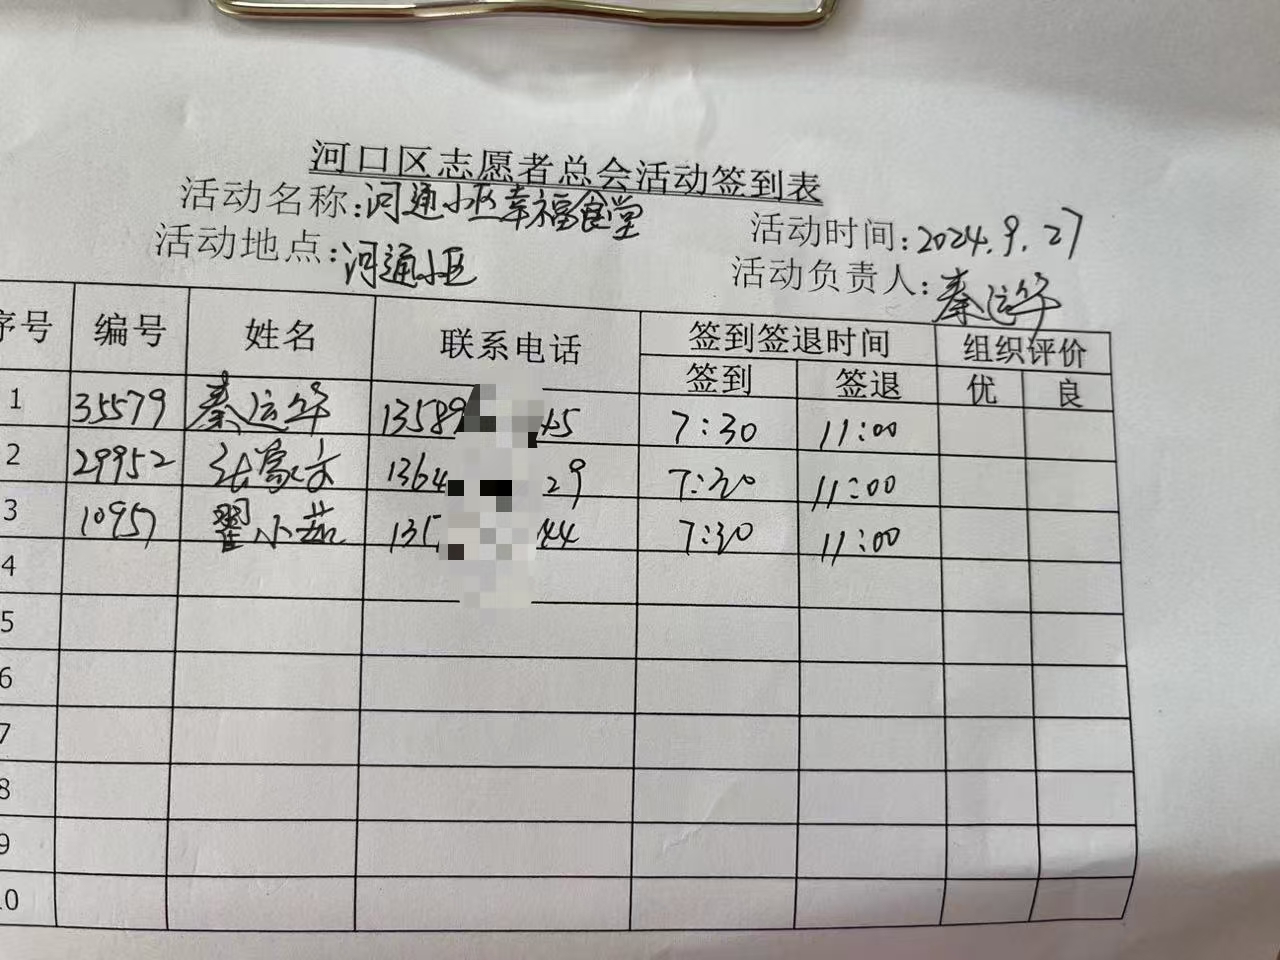 河口区志愿者总会活动签到表
活动名称:河通小区幸福食堂 活动时间:2024.9.27
活动地点:河通小区 活动负责人:秦运华
序号 编号 姓名 联系电话 签到签退时间 组织评价
签到 签退 优 良
1 35579 秦运华 13589 45 7:30 11:00
2 29952 张富文 1364 29 7:30 11:00
3 10957 翟小茹 135 44 7:30 11:00
4
5
6
7
8
9
10